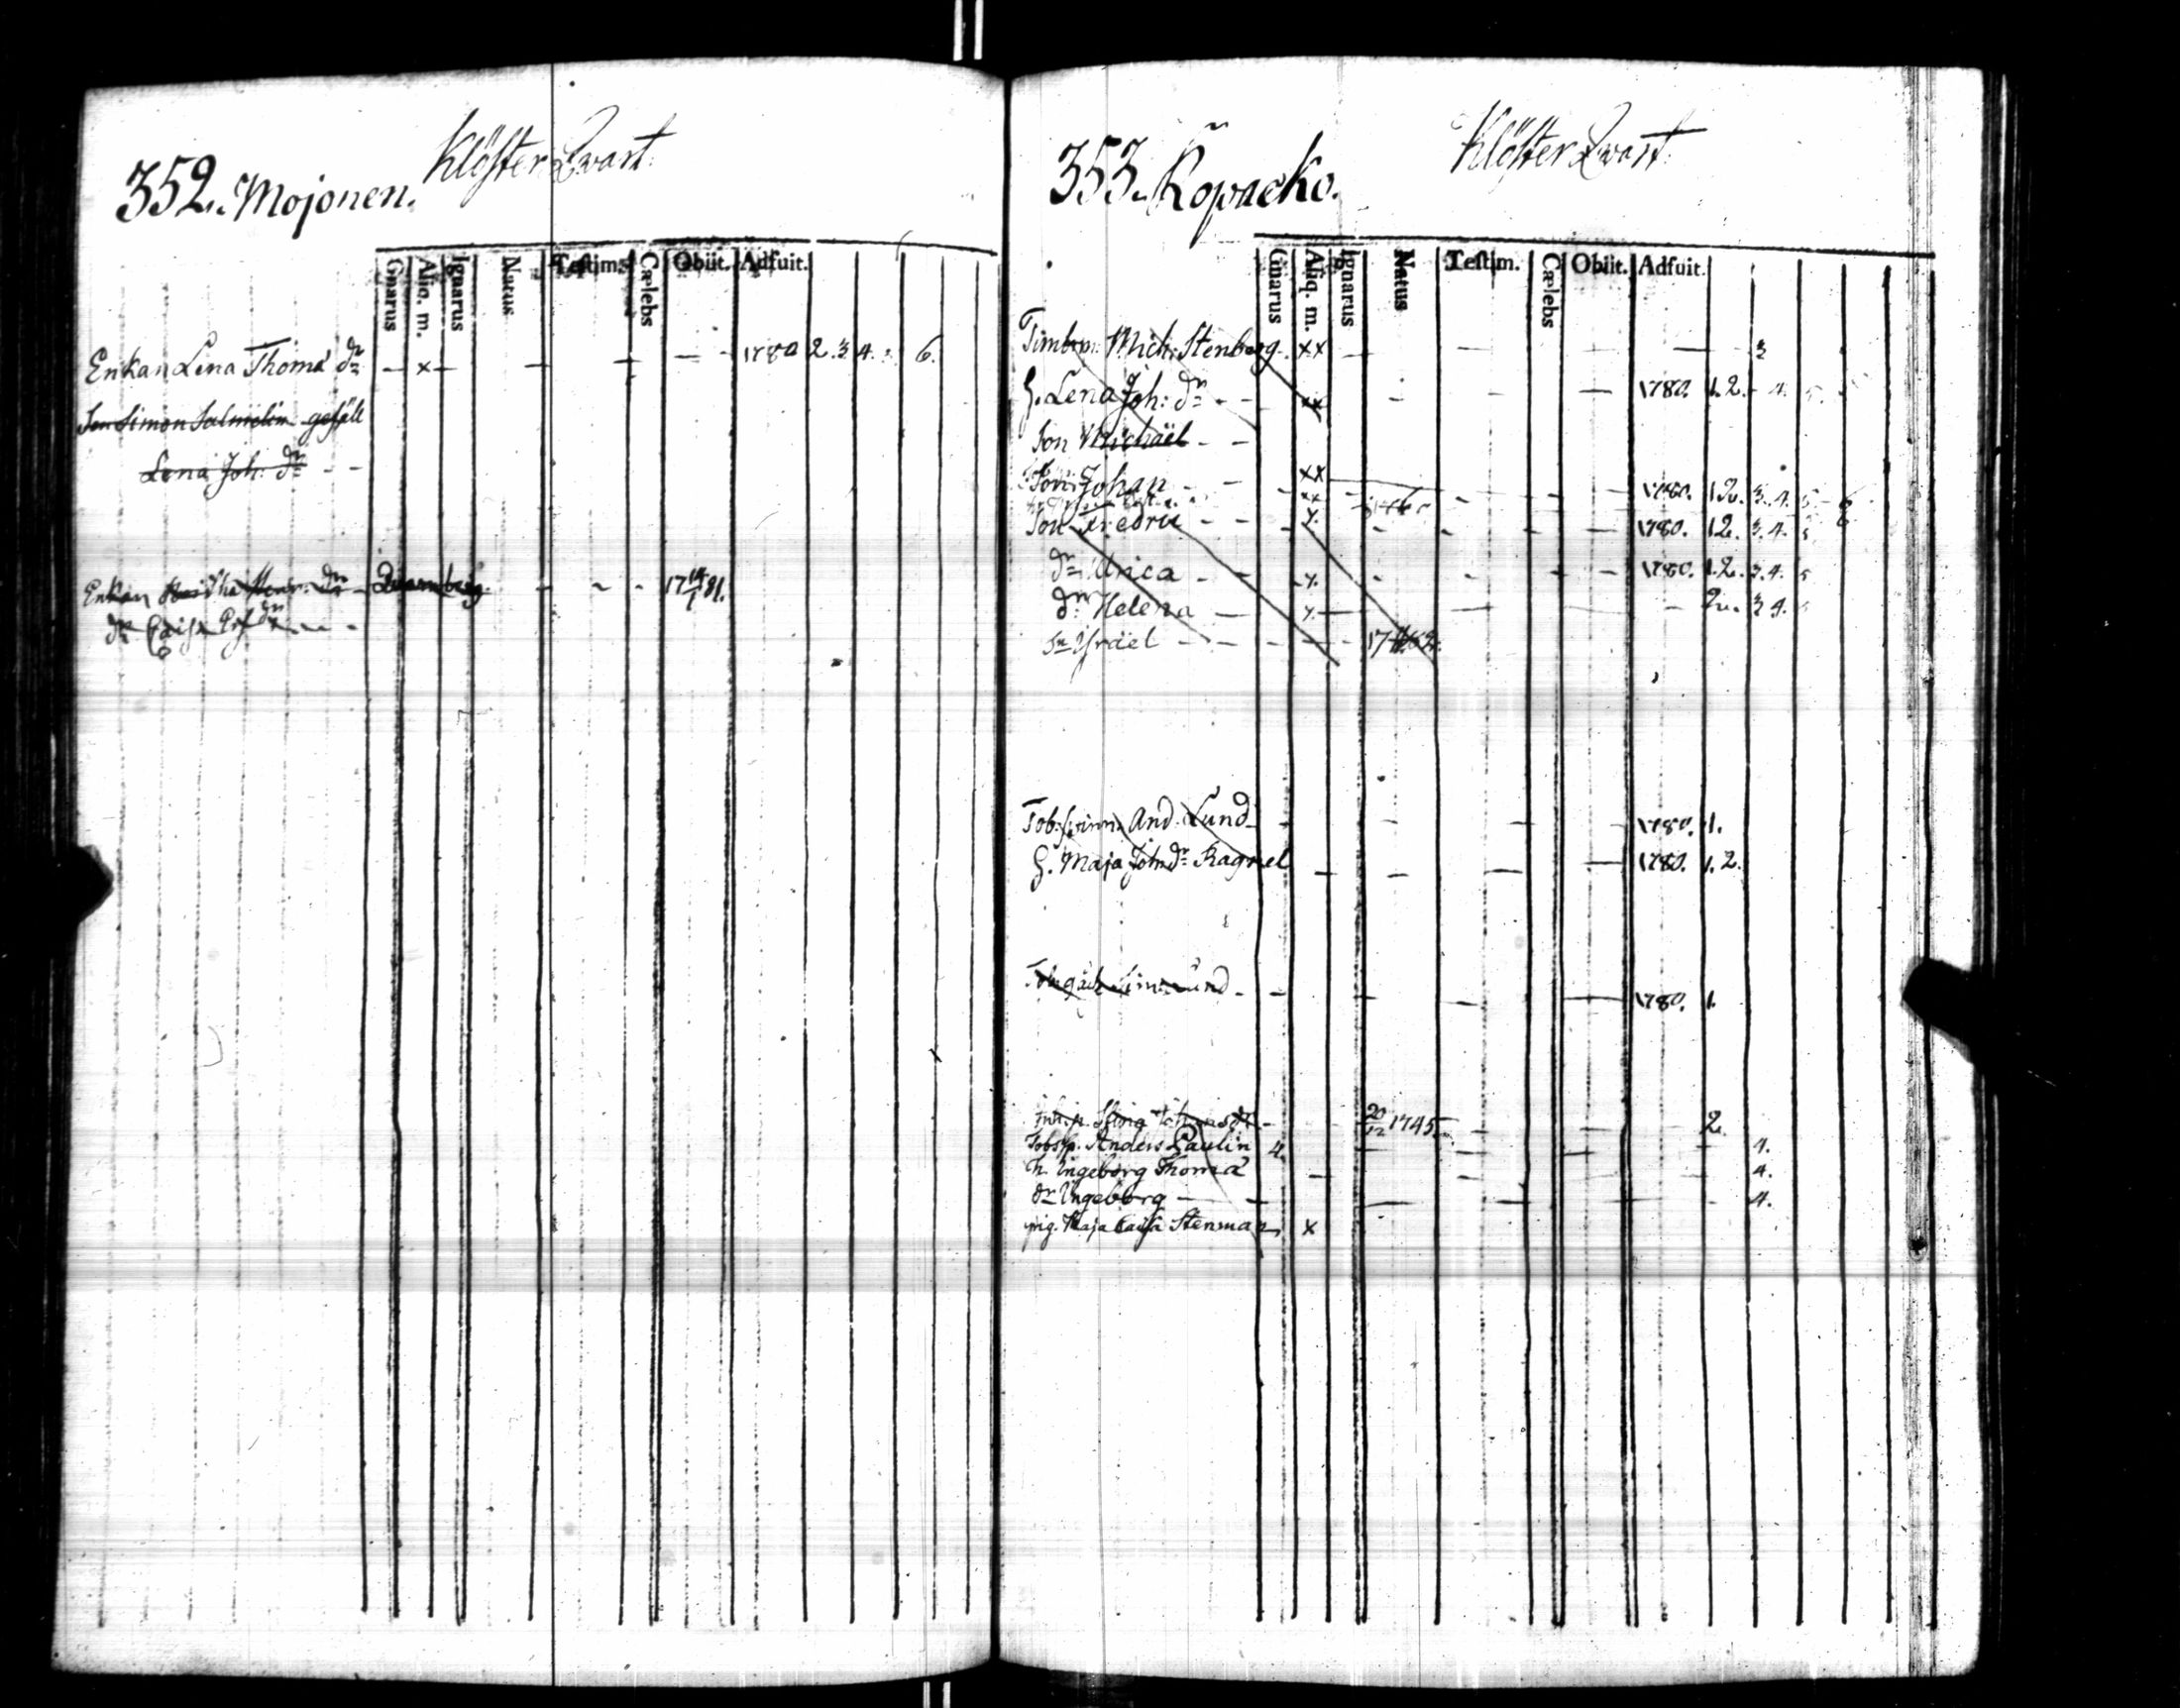 Klöster Qwart.
352. Mojonen.
Gnarus Aliq. m. Ignarus Natus Testim. Cælebs Obiit. Adfuit.
Enkan Lena Thomæ dr — x — — — — 1780 2. 3. 4. 6.
Son Simon Salmelin gesäll
Lena Joh: dr - -
Enkan Henr: dr 17 81.
dr Caisa
Klöster Qwart.
353. Kopacko.
Gnarus Aliq. m. Ignarus Natus Testim. Cælebs Obiit. Adfuit.
Timberm: Mich: Stenberg. xx — — — — 3
H. Lena Joh: dr - - xx - — 1780. 1. 2. - 4. 5.
Son Michaël - -
Son Johan - - xx 1780. 1 2. 3. 4. 5 - 6
Son Fredric - - y. - - - 1780. 1 2. 3. 4. 5
dr Ulrica - - y. - - - - 1780. 1. 2. 3. 4. 5
dr Helena — y. — — - 2. 3 4. 5
Sn Israel - - - - - 17
Tob: spinn And: Lund - - - — - 1780. 1.
H. Maja Joh: dr Ragnel — — — — 1780. 1. 2.
- - — — — 1780. 1.
20/12 1745. 2.
Tobssp. Anders Paulin 4. — — — - 4.
H. Ingeborg Thomæ — - — — - 4.
dr Ingeborg — — — — — — 4.
pig. Maja Caisa Stenman x